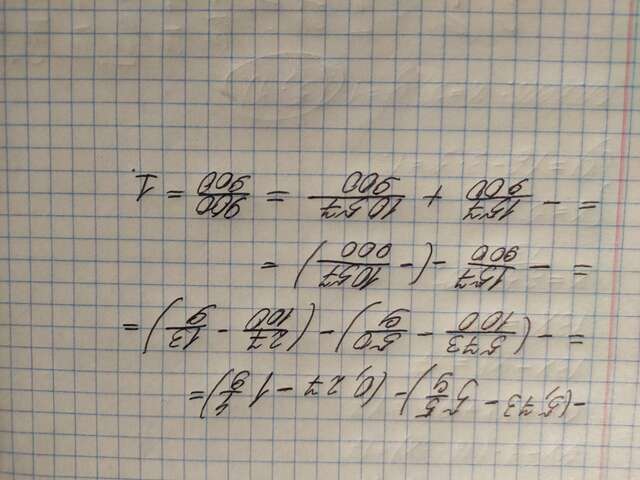 -(5,73 - 5 5/9) - (0,27 - 1 4/9) =
= -(573/100 - 50/9) - (27/100 - 13/9) =
= - 157/900 - (- 1057/900) =
= - 157/900 + 1057/900 = 900/900 = 1.